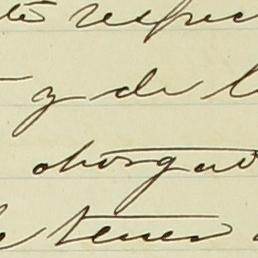 te respec
y de l
otorgad
de tener